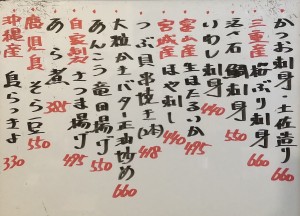 かつお刺身・土佐造り 660
三重産 岩ぶり刺身 660
活〆石鯛刺身 550
いわし刺身 440
富山産 生ほたるいか 495
宮城産 ほや刺し 440
つぶ貝串焼き(1本) 418
大粒かきバター正油炒め 660
あんこう竜田揚げ 550
自家製 さつま揚げ 495
あら煮 385
鹿児島 そら豆 550
沖縄産 島らっきょ 330